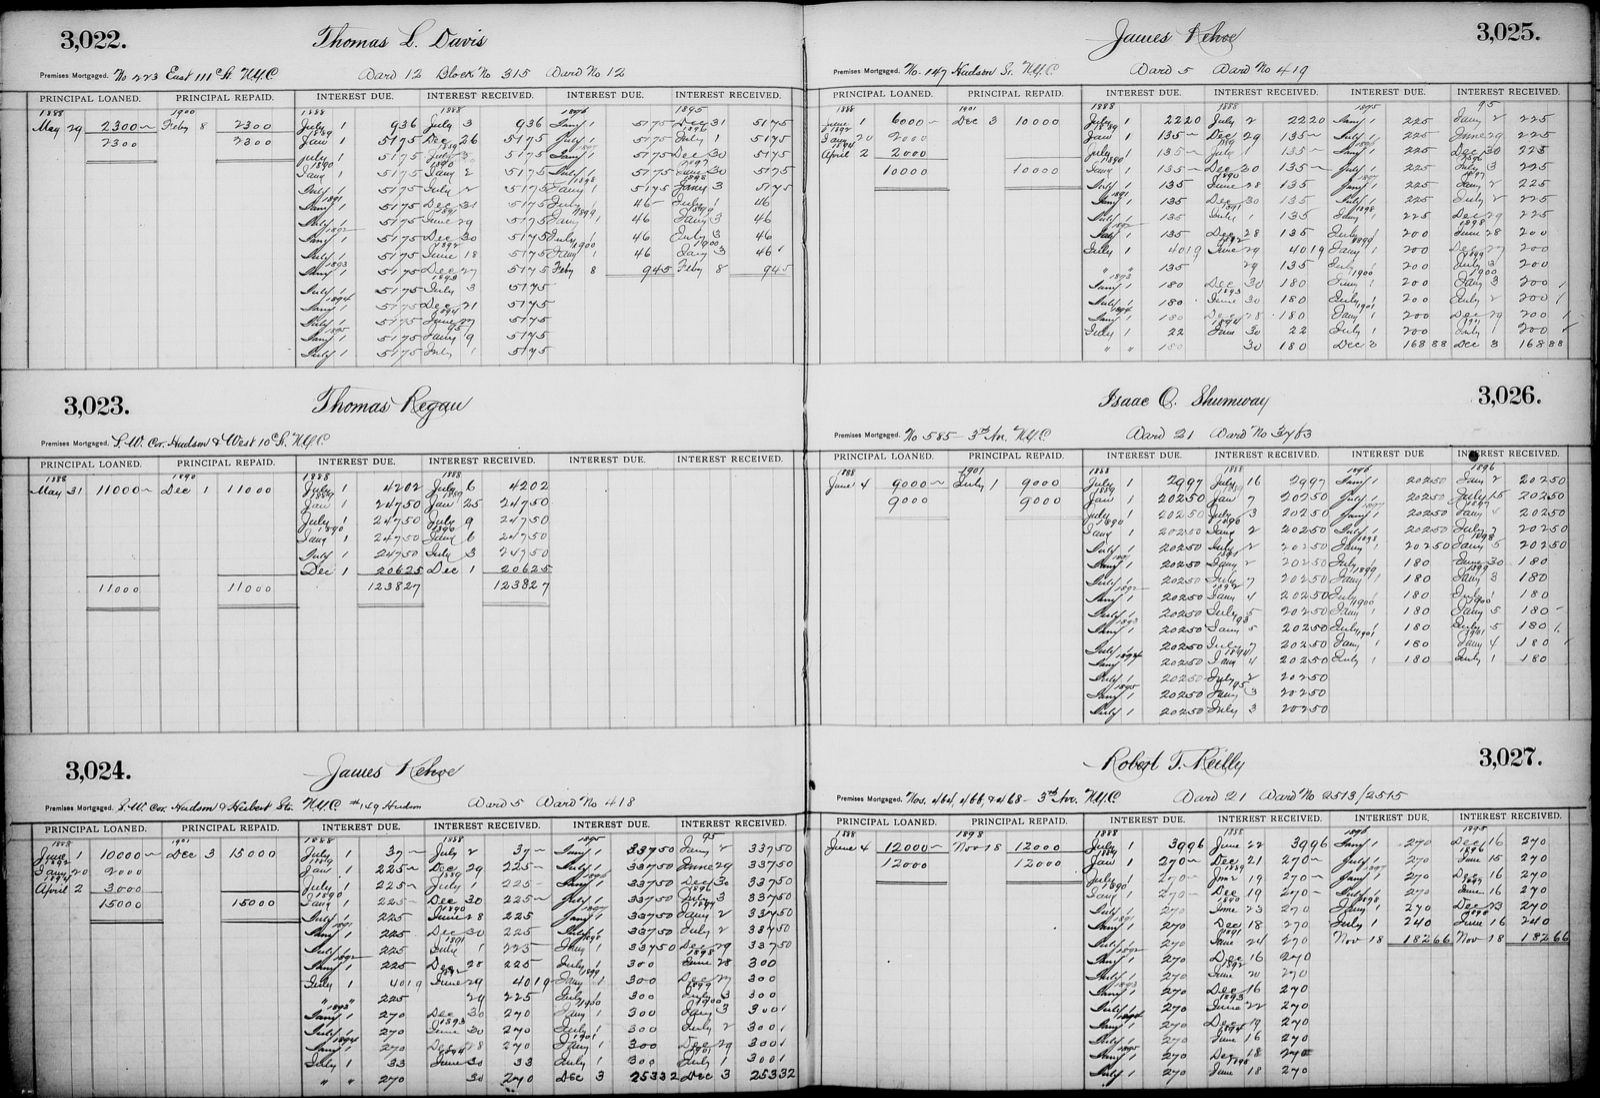 3,022.
Thomas L. Davis
Premises Mortgaged. No 223 East 111th St. N.Y.C Ward 12 Block No 315 Ward No 12
PRINCIPAL LOANED. PRINCIPAL REPAID. INTEREST DUE. INTEREST RECEIVED. INTEREST DUE. INTEREST RECEIVED.
1888 1900 1888 1888 1896 1895
May 29 2300~ Feby 8 2300 July 1 936 July 3 936 Jany 1 5175 Dec 31 5175
2300 2300 Jany 1 5175 Dec 26 5175 July 1 5175 July 1 5175
July 1 5175 5175 Jany 1 5175 Dec 30 5175
Jany 1 5175 Jany 2 5175 July 1 5175 June 30 5175
July 1 5175 July 2 5175 Jany 1 5175 Jany 3 5175
Jany 1 5175 Dec 31 5175 July 1 46 July 1 46
July 1 5175 June 29 5175 Jany 1 46 Jany 3 46
Jany 1 5175 Dec 30 5175 July 1 46 July 3 46
July 1 5175 June 18 5175 Jany 1 46 Jany 3 46
Jany 1 5175 Dec 27 5175 Feby 8 945 Feby 8 945
July 1 5175 July 3 5175
Jany 1 5175 Dec 21 5175
July 1 5175 June 27 5175
Jany 1 5175 Jany 9 5175
July 1 5175 July 1 5175
3,023.
Thomas Regan
Premises Mortgaged. S.W. Cor. Hudson & West 10th St. N.Y.C
PRINCIPAL LOANED. PRINCIPAL REPAID. INTEREST DUE. INTEREST RECEIVED. INTEREST DUE. INTEREST RECEIVED.
1888 1890 1888 1888
May 31 11000~ Dec 1 11000 July 1 4202 July 6 4202
Jany 1 24750 Jany 25 24750
July 1 24750 July 9 24750
Jany 1 24750 Jany 6 24750
July 1 24750 July 3 24750
Dec 1 20625 Dec 1 20625
11000 11000 123827 123827
3,024.
James Kehoe
Premises Mortgaged. S.W. Cor. Hudson & Hubert Sts. N.Y.C #149 Hudson Ward 5 Ward No 418
PRINCIPAL LOANED. PRINCIPAL REPAID. INTEREST DUE. INTEREST RECEIVED. INTEREST DUE. INTEREST RECEIVED.
1888 1901 1888 1888 1895 95
June 1 10000~ Dec 3 15000 July 1 37~ July 2 37~ Jany 1 33750 Jany 2 33750
Jany 20 2000 Jany 1 225~ Dec 29 225~ July 1 33750 June 29 33750
April 2 3000 July 1 225~ July 1 225 Jany 1 33750 Dec 30 33750
15000 15000 Jany 1 225 Dec 30 225~ July 1 33750 July 3 33750
July 1 225 June 28 225 Jany 1 33750 Jany 2 33750
Jany 1 225 Dec 30 225 July 1 33750 July 2 33750
July 1 225 July 1 225 Jany 1 33750 Dec 29 33750
Jany 1 225 Dec 28 225 July 1 300 June 28 300
July 1 4019 June 29 4019 Jany 1 300 Dec 27 300
" " 225 29 225 July 1 300 July 3 300
Jany 1 270 Dec 30 270 Jany 1 300 Jany 3 300
July 1 270 June 30 270 July 1 300 July 2 300
Jany 1 270 Dec 28 270 Jany 1 300 Dec 29 300
July 1 33 June 30 33 July 1 300 July 1 300
" " 270 30 270 Dec 3 25332 Dec 3 25332
3,025.
James Kehoe
Premises Mortgaged. No. 147 Hudson St. N.Y.C Ward 5 Ward No 419
PRINCIPAL LOANED. PRINCIPAL REPAID. INTEREST DUE. INTEREST RECEIVED. INTEREST DUE. INTEREST RECEIVED.
1888 1901 1888 1888 1895 95
June 1 6000~ Dec 3 10000 July 1 2220 July 2 2220 Jany 1 225 Jany 2 225
Jany 20 2000 Jany 1 135~ Dec 29 135~ July 1 225 June 29 225
April 2 2000 July 1 135~ July 1 135~ Jany 1 225 Dec 30 225
10000 10000 Jany 1 135~ Dec 30 135~ July 1 225 July 3 225
July 1 135 June 28 135 Jany 1 225 Jany 2 225
Jany 1 135 Dec 30 135 July 1 225 July 2 225
July 1 135 July 1 135 Jany 1 225 Dec 29 225
Jany 1 135 Dec 28 135 July 1 200 June 28 200
July 1 4019 June 29 4019 Jany 1 200 Dec 27 200
" " 135 29 135 July 1 200 July 3 200
Jany 1 180 Dec 30 180 Jany 1 200 Jany 3 200
July 1 180 June 30 180 July 1 200 July 2 200
Jany 1 180 Dec 28 180 Jany 1 200 Dec 29 200
July 1 22 June 30 22 July 1 200 July 1 200
" " 180 30 180 Dec 3 16888 Dec 3 16888
3,026.
Isaac O. Shumway
Premises Mortgaged. No 585 - 3rd Av. N.Y.C Ward 21 Ward No
PRINCIPAL LOANED. PRINCIPAL REPAID. INTEREST DUE. INTEREST RECEIVED. INTEREST DUE INTEREST RECEIVED.
1888 1901 1888 1888 1896 1896
June 4 9000~ July 1 9000 July 1 2997 July 16 2997 Jany 1 20250 Jany 2 20250
9000 9000 Jany 1 20250 Jany 7 20250 July 1 20250 July 15 20250
July 1 20250 July 3 20250 Jany 1 20250 Jany 20250
Jany 1 20250 Jany 2 20250 July 1 20250 July 20250
July 1 20250 July 2 20250 Jany 1 20250 Jany 5 20250
Jany 1 20250 Jany 2 20250 July 1 180 June 30 180
July 1 20250 July 7 20250 Jany 1 180 Jany 3 180
Jany 1 20250 Jany 4 20250 July 1 180 July 1 180
July 1 20250 July 5 20250 Jany 1 180 Jany 5 180
Jany 1 20250 Jany 5 20250 July 1 180 July 5 180
July 1 20250 July 7 20250 Jany 1 180 Jany 4 180
Jany 1 20250 Jany 4 20250 July 1 180 July 1 180
July 1 20250 July 2 20250
Jany 1 20250 Jany 3 20250
July 1 20250 July 3 20250
3,027.
Robert T. Reilly
Premises Mortgaged. Nos. 464, 466, & 468 - 3rd Av. N.Y.C Ward 21 Ward No 2513/2515
PRINCIPAL LOANED. PRINCIPAL REPAID. INTEREST DUE. INTEREST RECEIVED. INTEREST DUE. INTEREST RECEIVED.
1888 1898 1888 1888 1896 1895
June 4 12000~ Nov 18 12000 July 1 3996 June 22 3996 Jany 1 270 Dec 16 270
12000 12000 Jany 1 270~ Dec 21 270~ July 1 270 June 15 270
July 1 270~ June 19 270~ Jany 1 270 Dec 16 270
Jany 1 270~ Dec 19 270~ July 1 270 June 16 270
July 1 270 June 23 270 Jany 1 270 Dec 23 270
Jany 1 270 Dec 18 270 July 1 240 June 16 240
July 1 270 June 24 270 Nov 18 18266 Nov 18 18266
Jany 1 270 Dec 16 270
July 1 270 June 20 270
Jany 1 270 Dec 16 270
July 1 270 June 22 270
Jany 1 270 Dec 19 270
July 1 270 June 16 270
Jany 1 270 Dec 18 270
July 1 270 June 18 270